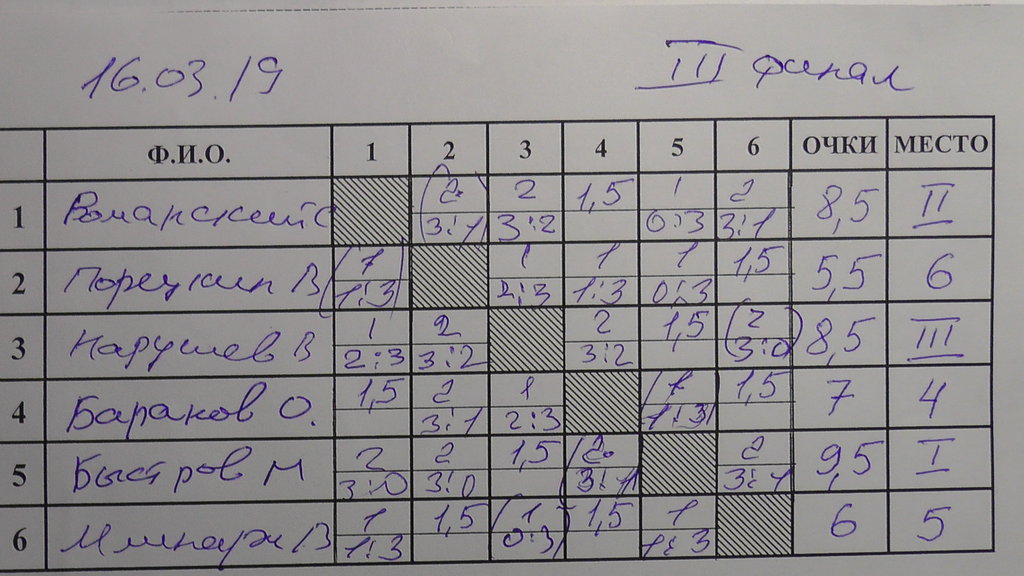 16.03.19 III финал
Ф.И.О. 1 2 3 4 5 6 ОЧКИ МЕСТО
1 (2 2 1,5 1 2 8,5 II
3:1) 3:2 0:3 3:1
2 Порецкин В (1 1 1 1 1,5 5,5 6
1:3) 2:3 1:3 0:3
3 Нарушев В 1 2 2 1,5 (2 8,5 III
2:3 3:2 3:2 3:0)
4 Баранов О. 1,5 2 1 (1 1,5 7 4
3:1 2:3 1:3)
5 Быстров М 2 2 1,5 (2 2 9,5 I
3:0 3:0 3:1) 3:1
6 В 1 1,5 (1 1,5 1 6 5
1:3 0:3) 1:3